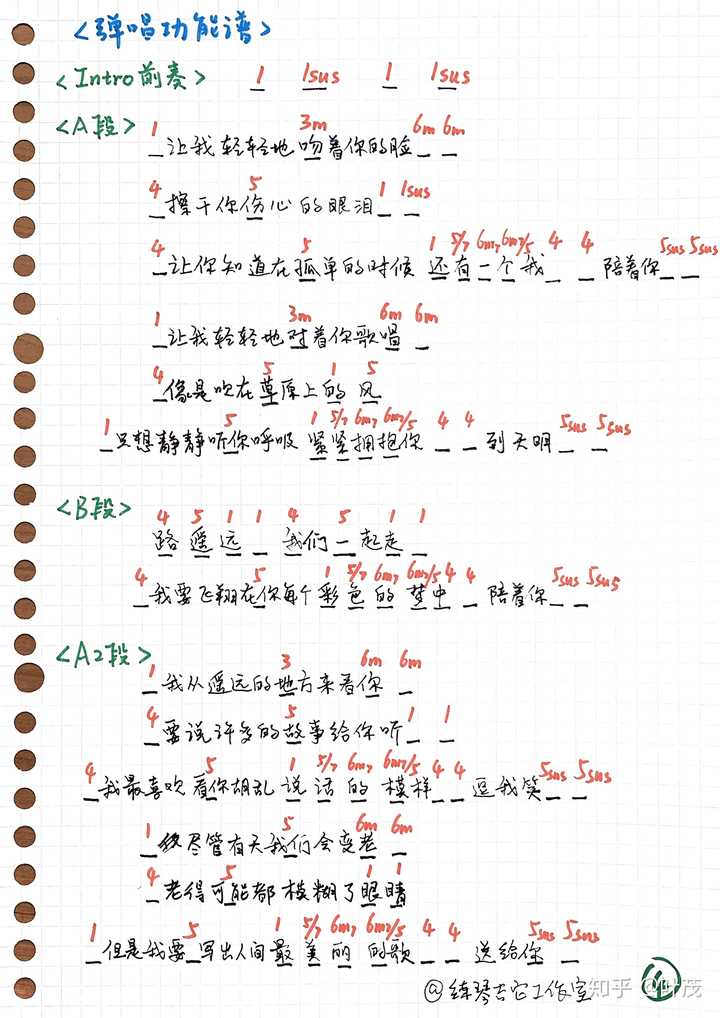 <弹唱功能谱>
<Intro前奏> 1 1sus 1 1sus
<A段> 1 3m 6m 6m
_让我轻轻地吻着你的脸_ _
4 5 1 1sus
_擦干你伤心的眼泪_ _
4 5 1 5/7 6m7 6m7/5 4 4 5sus 5sus
_让你知道在孤单的时候 还有一个我_ _陪着你_ _
1 3m 6m 6m
_让我轻轻地对着你歌唱_
4 5 1 5
_像是吹在草原上的风
1 5 1 5/7 6m7 6m7/5 4 4 5sus 5sus
_只想静静听你呼吸 紧紧拥抱你_ _到天明_ _
<B段> 4 5 1 1 4 5 1 1
路遥远_ 我们一起走_
4 5 1 5/7 6m7 6m7/5 4 4 5sus 5sus
_我要飞翔在你每个彩色的梦中_ 陪着你_ _
<A2段> 1 3 6m 6m
_我从遥远的地方来看你_
4 5 1 1
_要说许多的故事给你听_ _
4 5 1 5/7 6m7 6m7/5 4 4 5sus 5sus
_我最喜欢看你胡乱说话的模样_ _逗我笑_ _
1 5 6m 6m
_尽管有天我们会变老_
4 5 1 1
_老得可能都模糊了眼睛
1 5 1 5/7 6m7 6m7/5 4 4 5sus 5sus
_但是我要_写出人间最美丽的歌_ _送给你_ _
@练琴去它工作室
知乎 @叶茂